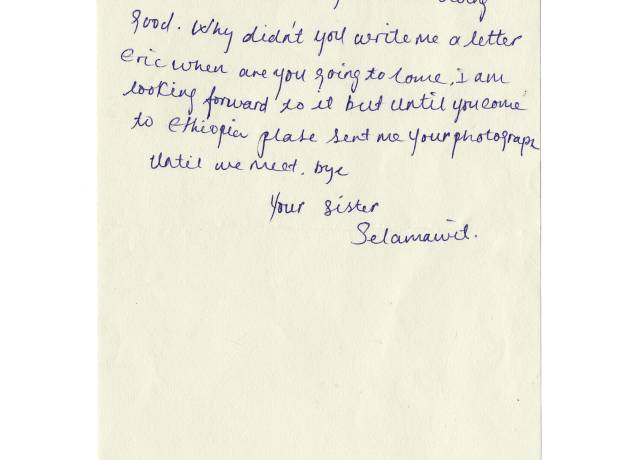 good. Why didn't you write me a letter
Eric when are you going to come, i am
looking forward to it but until you come
to Ethiopia plase sent me your photograph
Until we meet. bye
Your sister
Selamawit.